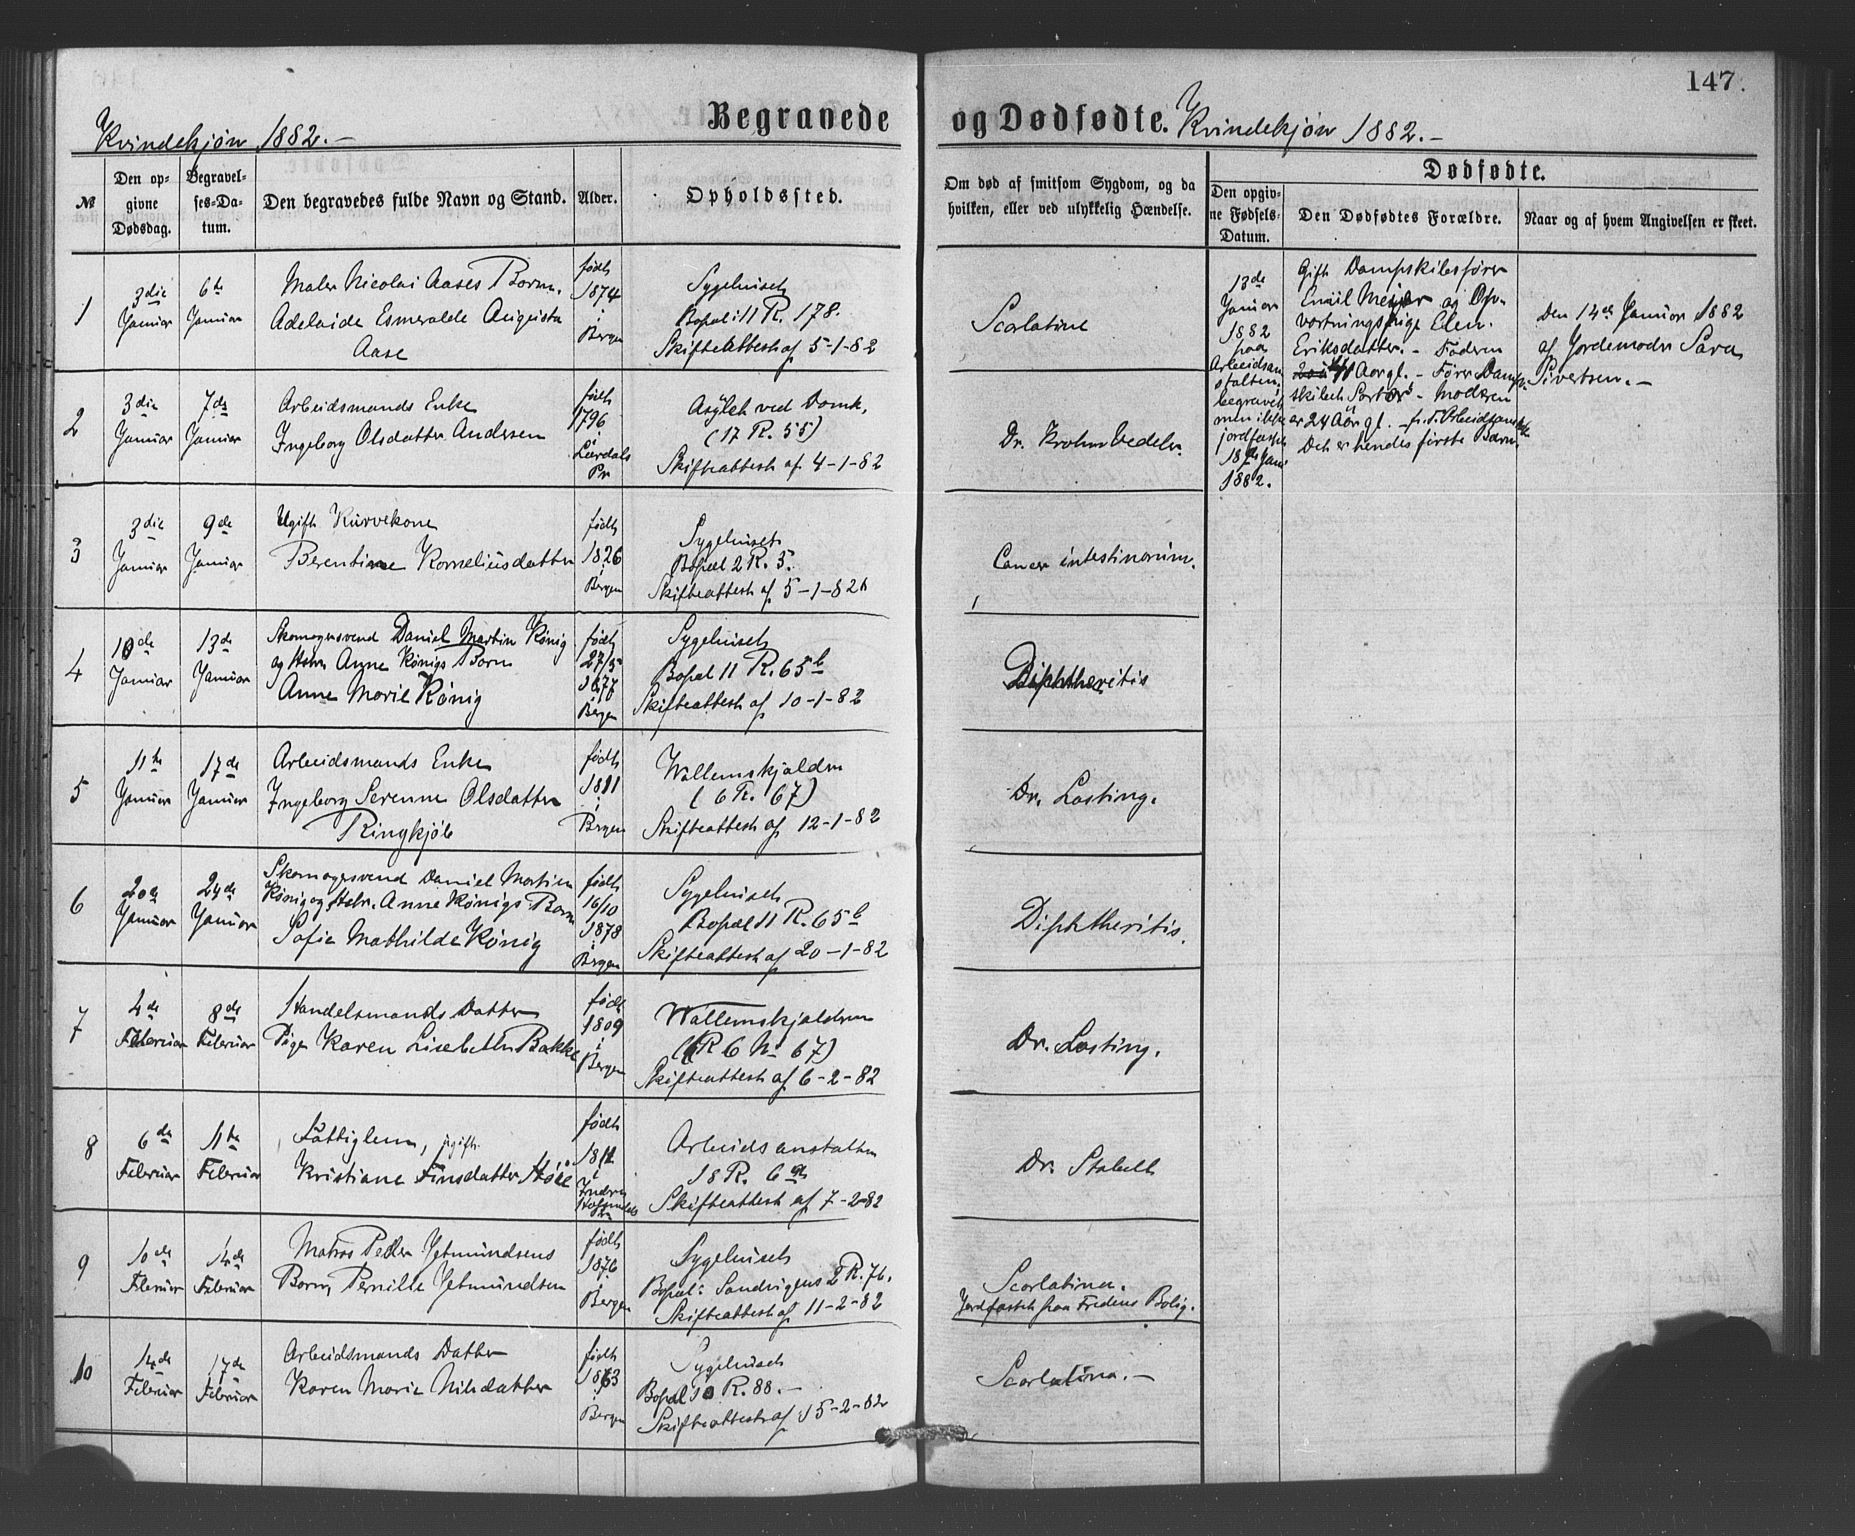 147.
Begravede og Dødfødte.
Kvindekjøn 1882.-
Kvindekjøn 1882.-
№
Den opgivne Dødsdag.
Begravelses-Datum.
Den begravedes fulde Navn og Stand.
Alder.
Opholdssted.
Om død af smitsom Sygdom, og da
hvilken, eller ved ulykkelig Hændelse.
Dødfødte.
Den opgivne Fødsels-Datum.
Den Dødfødtes Forældre.
Naar og af hvem Angivelsen er skeet.
1
3die Januar
6te Januar
Maler Nicolai Aases Barn.
Adelaide Esmeralde Augusta
Aase
født 1874 i Bergen
Sygehuset
Bopæl: 11 R. 178.
Skifteattest af 5-1-82
Scarlatine
13de Januar 1882 paa Arbeidsanstalten, begravet men ikke jordfæstet 18de Janr 1882.
Gift Dampskibsfører
Emil Meyer og Op-
vartningspige Elen
Eriksdatter. - Faderen
41 Aar gl. - Fører Damp-
skibet - Moderen
er 24 Aar gl. -
Det er hendes første Barn.
Den 14de Januar 1882
af Jordemoder Sara
Sivertsen. -
2
3die Januar
7de Januar
Arbeidsmands Enke
Ingeborg Olsdatter Andersen
født 1796 i Lærdals Pr
Asylet ved Domk.
(17 R. 55)
Skifteattest af 4-1-82
Dr. Krohn Vedeler.
3
3die Januar
9de Januar
Ugift Kurvekone
Berentine Korneliusdatter
født 1826 i Bergen
Sygehuset
Bopæl 2 R. 5.
Skifteattest af 5-1-82
Cancer intestinorum.
4
10de Januar
13de Januar
Skomagersvend Daniel Martin König
og Hstr Anne Königs Barn
Anne Marie König
født 27/5 1877 i Bergen
Sygehuset
Bopæl 11 R. 65b
Skifteattest af 10-1-82
Diphtheritis
5
11te Januar
17de Januar
Arbeidsmands Enke
Ingeborg Serenne Olsdatter
Ringkjøb
født 1811 i Bergen
Wallemskjolden
(6 R. 67)
Skifteattest af 12-1-82
Dr. Lasting.
6
20de Januar
24de Januar
Skomagersvend Daniel Martin
König og Hstr. Anne Königs Barn
Sofie Mathilde König
født 16/10 1878 i Bergen
Sygehuset
Bopæl 11 R. 65b
Skifteattest af 20-1-82
Diphtheritis.
7
4de Februar
8de Februar
Handelsmands Datter
Pigen Karen Lisebeth Bakke
født 1809 i Bergen
Wallemskjolden
(R 6 No 67)
Skifteattest af 6-2-82
Dr. Lasting.
8
6de Februar
11te Februar
Fattiglem, ugift.
Kristiane Finsdatter
født i Indre Pr
Arbeidsanstalten
18 R. 6
Skifteattest af 7-2-82
Dr. Stabell
9
10de Februar
14de Februar
Matros Peder Jetmundsens
Barn Pernille Jetmundsen
født 1876 i Bergen
Sygehuset
Bopæl: Sandvigens 2 R. 76.
Skifteattest af 11-2-82
Scarlatina.
Jordfæstet paa Fredens Bolig.
10
14de Februar
17de Februar
Arbeidsmands Datter
Karen Marie Nilsdatter
født i Bergen
Sygehuset
Bopæl 10 R. 88. -
Skifteattest af 15-2-82
Scarlatina. -